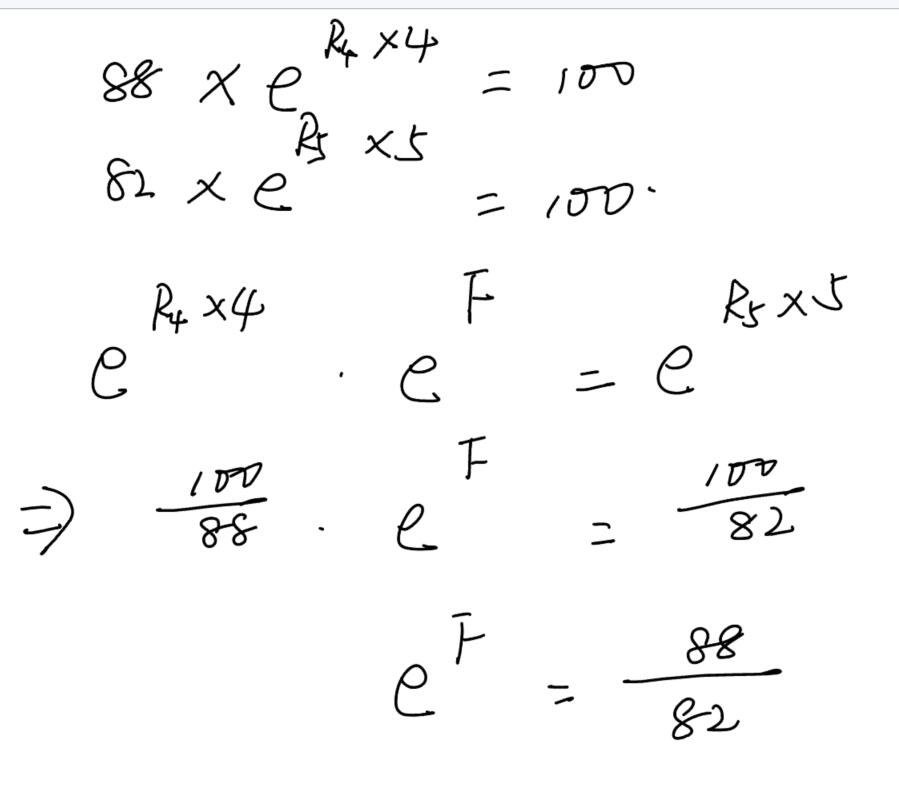 88 × e^{R₄ ×4} = 100
82 × e^{R₅ ×5} = 100.
e^{R₄ ×4} · e^{F} = e^{R₅ ×5}
⇒ 100/88 · e^{F} = 100/82
e^{F} = 88/82